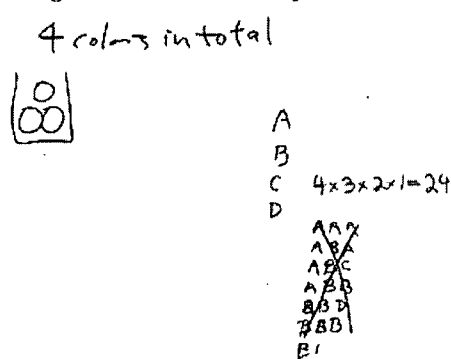 4 colors in total
A
B
C 4×3×2×1=24
D
A A A
A B A
A B C
A B B
B B D
B B B